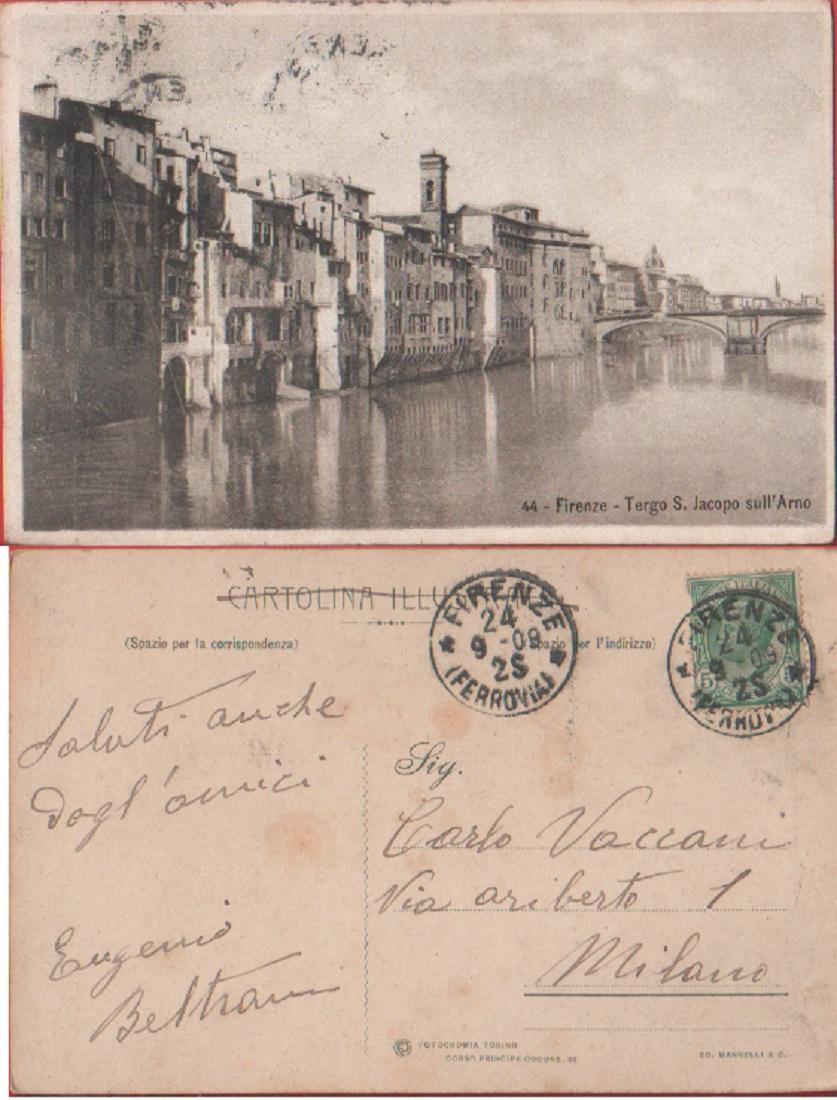 44 - Firenze - Tergo S. Jacopo sull'Arno
CARTOLINA
(Spazio per la corrispondenza)
per l'indirizzo)
FIRENZE
24
9 - 09
2S
(FERROVIA)
FIRENZE
24
9 09
2S
(FERROVIA)
5
Saluti anche
dagl'amici
Eugenio
Beltrami
Sig.
Carlo Vaccani
Via ariberto 1
Milano
FOTOCROMIA TORINO
CORSO PRINCIPE ODDONE, 36
ED. MANNELLI & C.